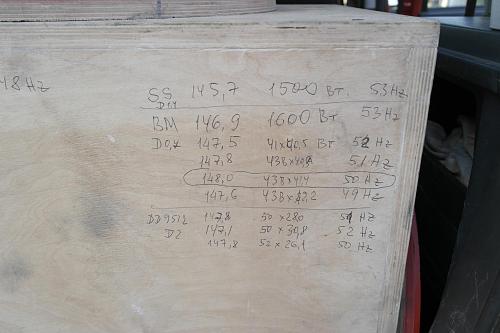 48Hz
SS 145,7 1500 Вт. 53Hz
D1,1
BM 146,9 1600 Вт 53Hz
D0,4 147,5 41x40,5 Вт 52Hz
147,8 43В x 51Hz
148,0 43В x 41,4 50 Hz
147,6 43В x 42,2 49 Hz
DD9512 147,8 50 x 28,0 51 Hz
D2 147,1 50 x 30,8 52 Hz
147,8 52 x 26,1 50 Hz